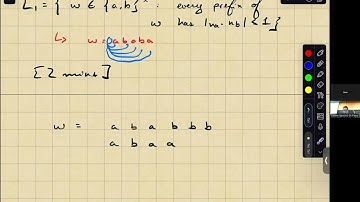 L₁ = { w ∈ {a,b}* : every prefix of
w has |nₐ - n_b| ≤ 1 }
↳ w = ababa
[2 mins]
w = a b a b b b
a b a a